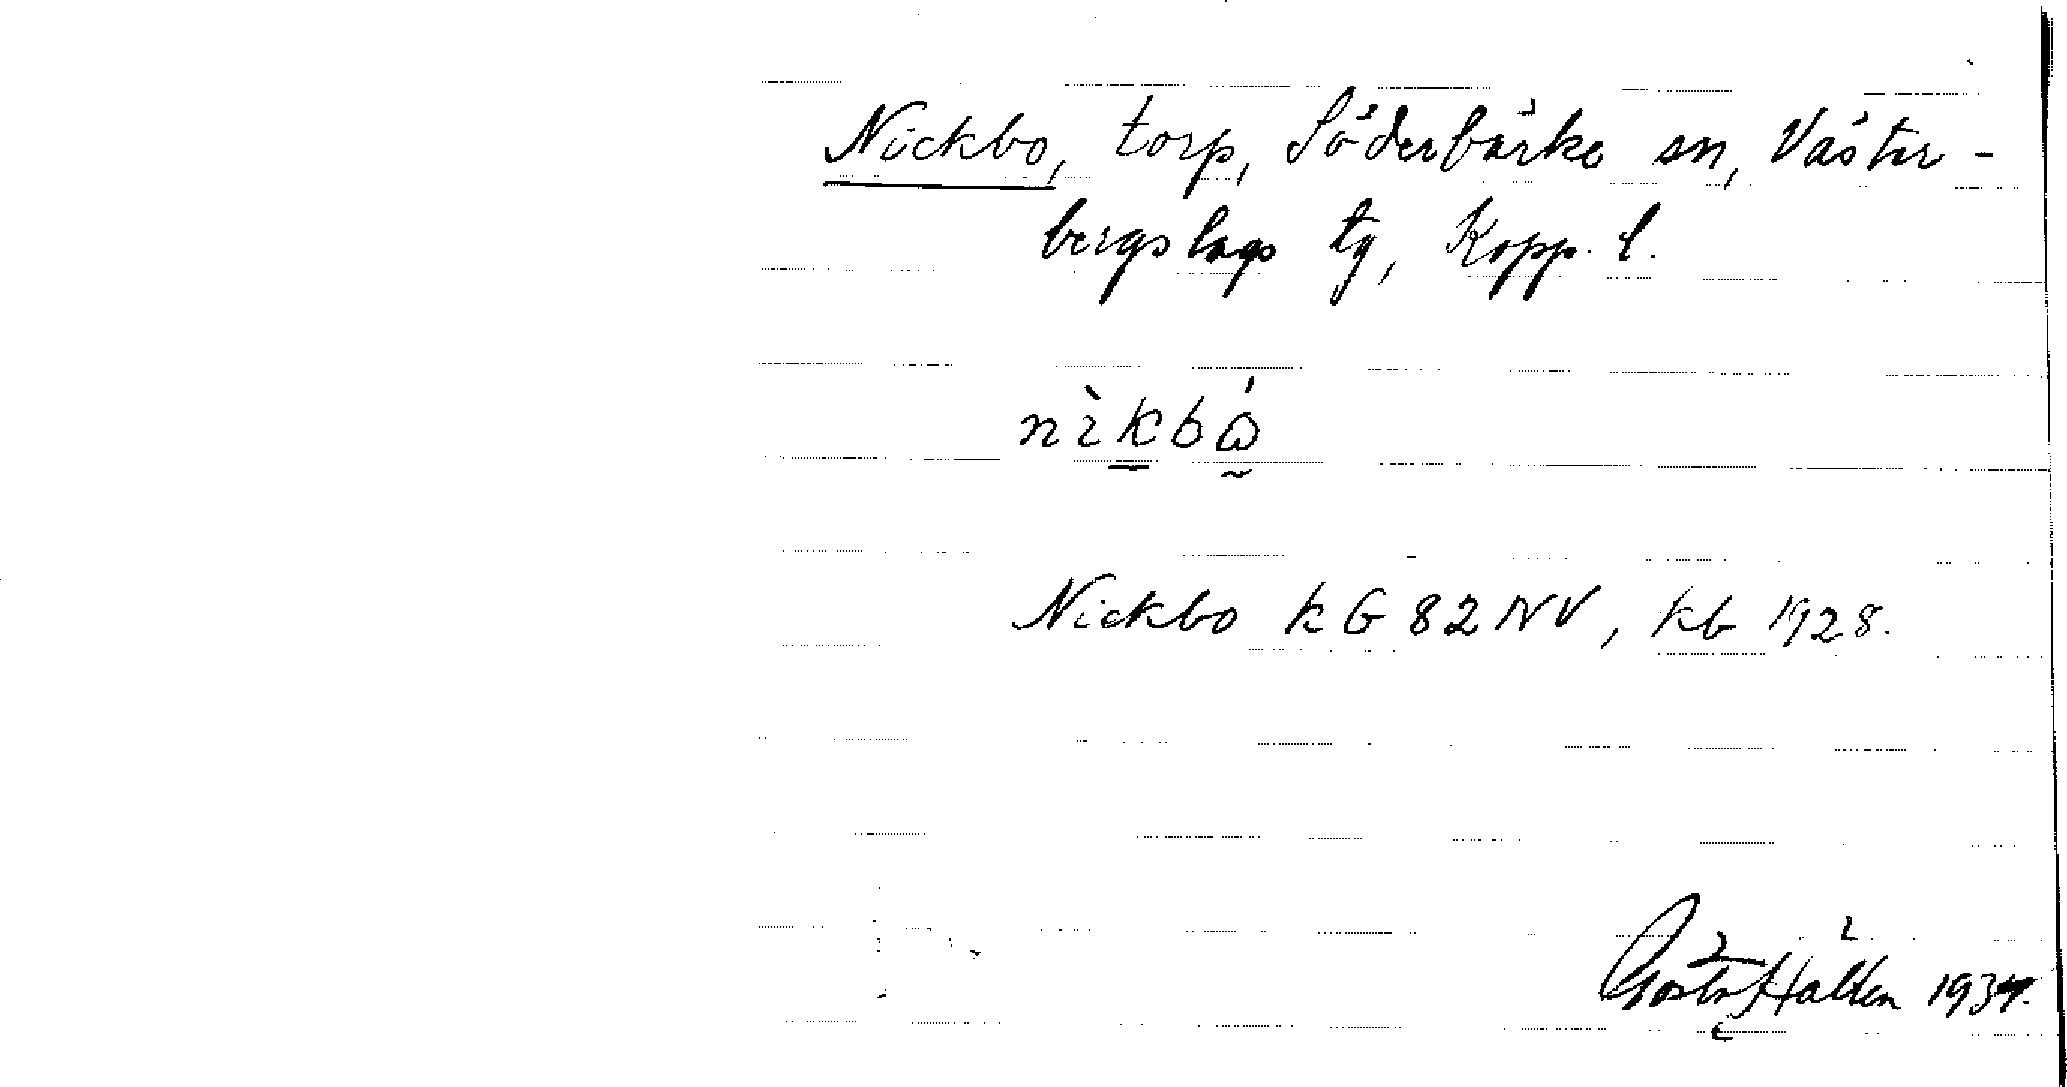 Nickbo, torp, Söderbärke sn, Väster-
bergslags tg, Kopp. l.
nìkbώ
Nickbo KG 82 NV, kb 1928.
Gösta Hallén